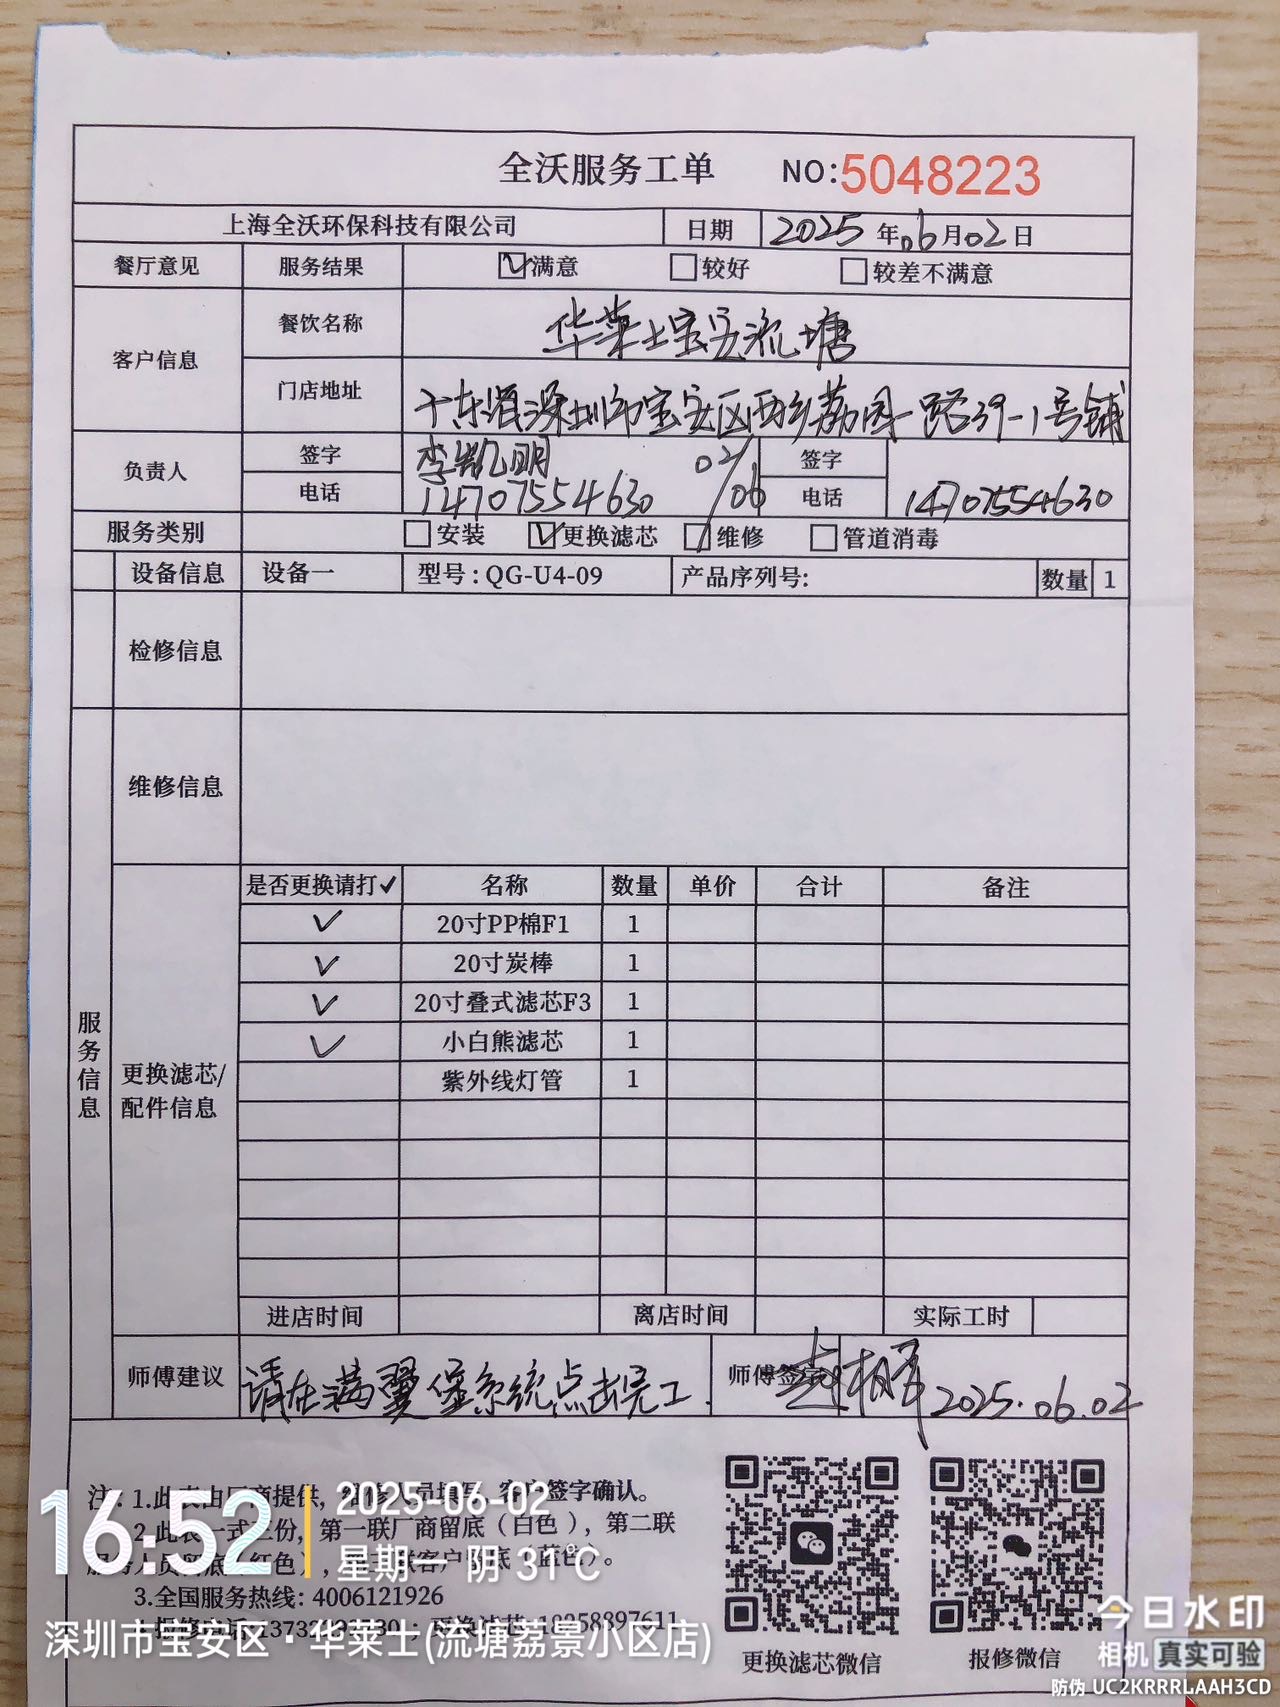 全沃服务工单 NO:5048223
上海全沃环保科技有限公司 日期 2025年06月02日
餐厅意见 服务结果 满意 较好 较差不满意
客户信息 餐饮名称 华莱士宝安流塘
门店地址 广东省深圳市宝安区西乡荔园路39-1号铺
负责人 签字 李凯明 02/06 签字
电话 14707554630 电话 14707554630
服务类别 安装 更换滤芯 维修 管道消毒
设备信息 设备一 型号:QG-U4-09 产品序列号: 数量 1
检修信息
维修信息
服务信息
更换滤芯/配件信息
是否更换请打✓ 名称 数量 单价 合计 备注
✓ 20寸PP棉F1 1
✓ 20寸炭棒 1
✓ 20寸叠式滤芯F3 1
✓ 小白熊滤芯 1
紫外线灯管 1
进店时间 离店时间 实际工时
师傅建议 请在满翼堡系统点击完工. 师傅签字 2025.06.02
注: 1.此表由厂商提供, 签字确认。
2.此表一式三份, 第一联厂商留底(白色), 第二联
服务人员留底(红色), 联客户留底(蓝色)。
3.全国服务热线: 4006121926
更换滤芯微信 报修微信
16:52 2025-06-02
星期一 阴 31℃
深圳市宝安区·华莱士(流塘荔景小区店)
今日水印
相机 真实可验
防伪 UC2KRRRLAAH3CD